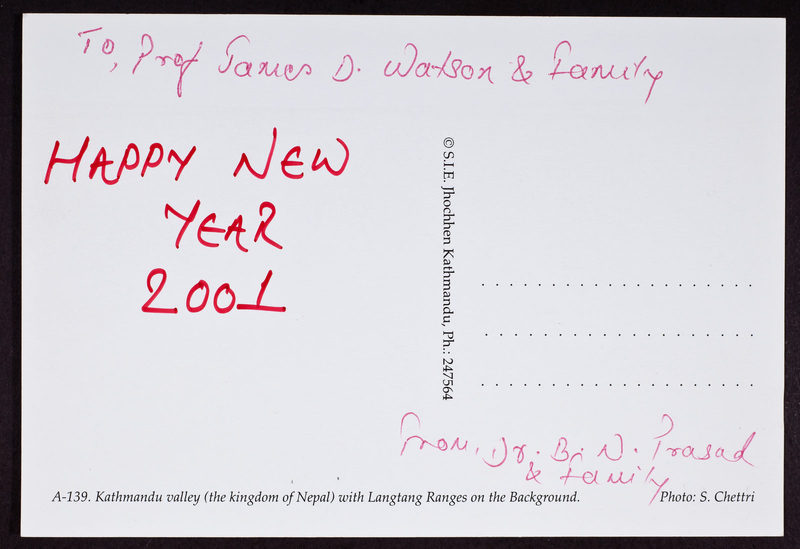 To, Prof James D. Watson & Family
HAPPY NEW
YEAR
2001
© S.I.E. Jhochhen Kathmandu, Ph.: 247564
From, Dr. B. N. Prasad
& Family
A-139. Kathmandu valley (the kingdom of Nepal) with Langtang Ranges on the Background.
Photo: S. Chettri